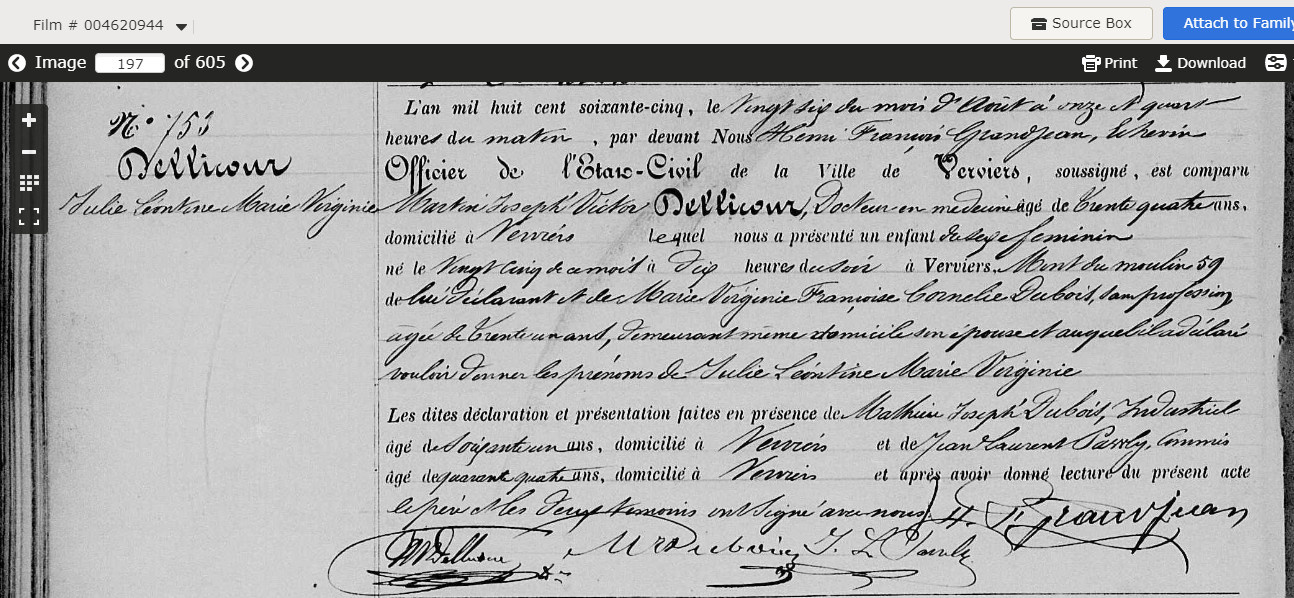 Film # 004620944
Source Box
Attach to Family
Image 197 of 605
Print
Download
N° 753
Dellicour
Julie Léontine Marie Virginie
L'an mil huit cent soixante-cinq, le Vingt six du mois d'Août à onze et quart
heures du matin, par devant Nous Henri François Grandjean, Echevin
Officier de l'Etat-Civil de la Ville de Verviers, soussigné, est comparu
Martin Joseph Victor Dellicour, Docteur en medecine âgé de Trente quatre ans,
domicilié à Verviers lequel nous a présenté un enfant du sexe feminin
né le Vingt cinq de ce mois à dix heures du soir à Verviers, Mont du moulin 59
de lui déclarant et de Marie Virginie Françoise Cornelie Dubois, sans profession,
agée de Trente un ans, demeurant même domicile son épouse et auquel il a déclaré
vouloir donner les prénoms de Julie Léontine Marie Virginie
Les dites déclaration et présentation faites en présence de Mathieu Joseph Dubois, Industriel
âgé de soixante un ans, domicilié à Verviers et de Jean Laurent commis
âgé de quarante quatre ans, domicilié à Verviers et après avoir donné lecture du présent acte
le père et les deux temoins ont signé avec nous. H. F. Grandjean
Dellicour J. L.